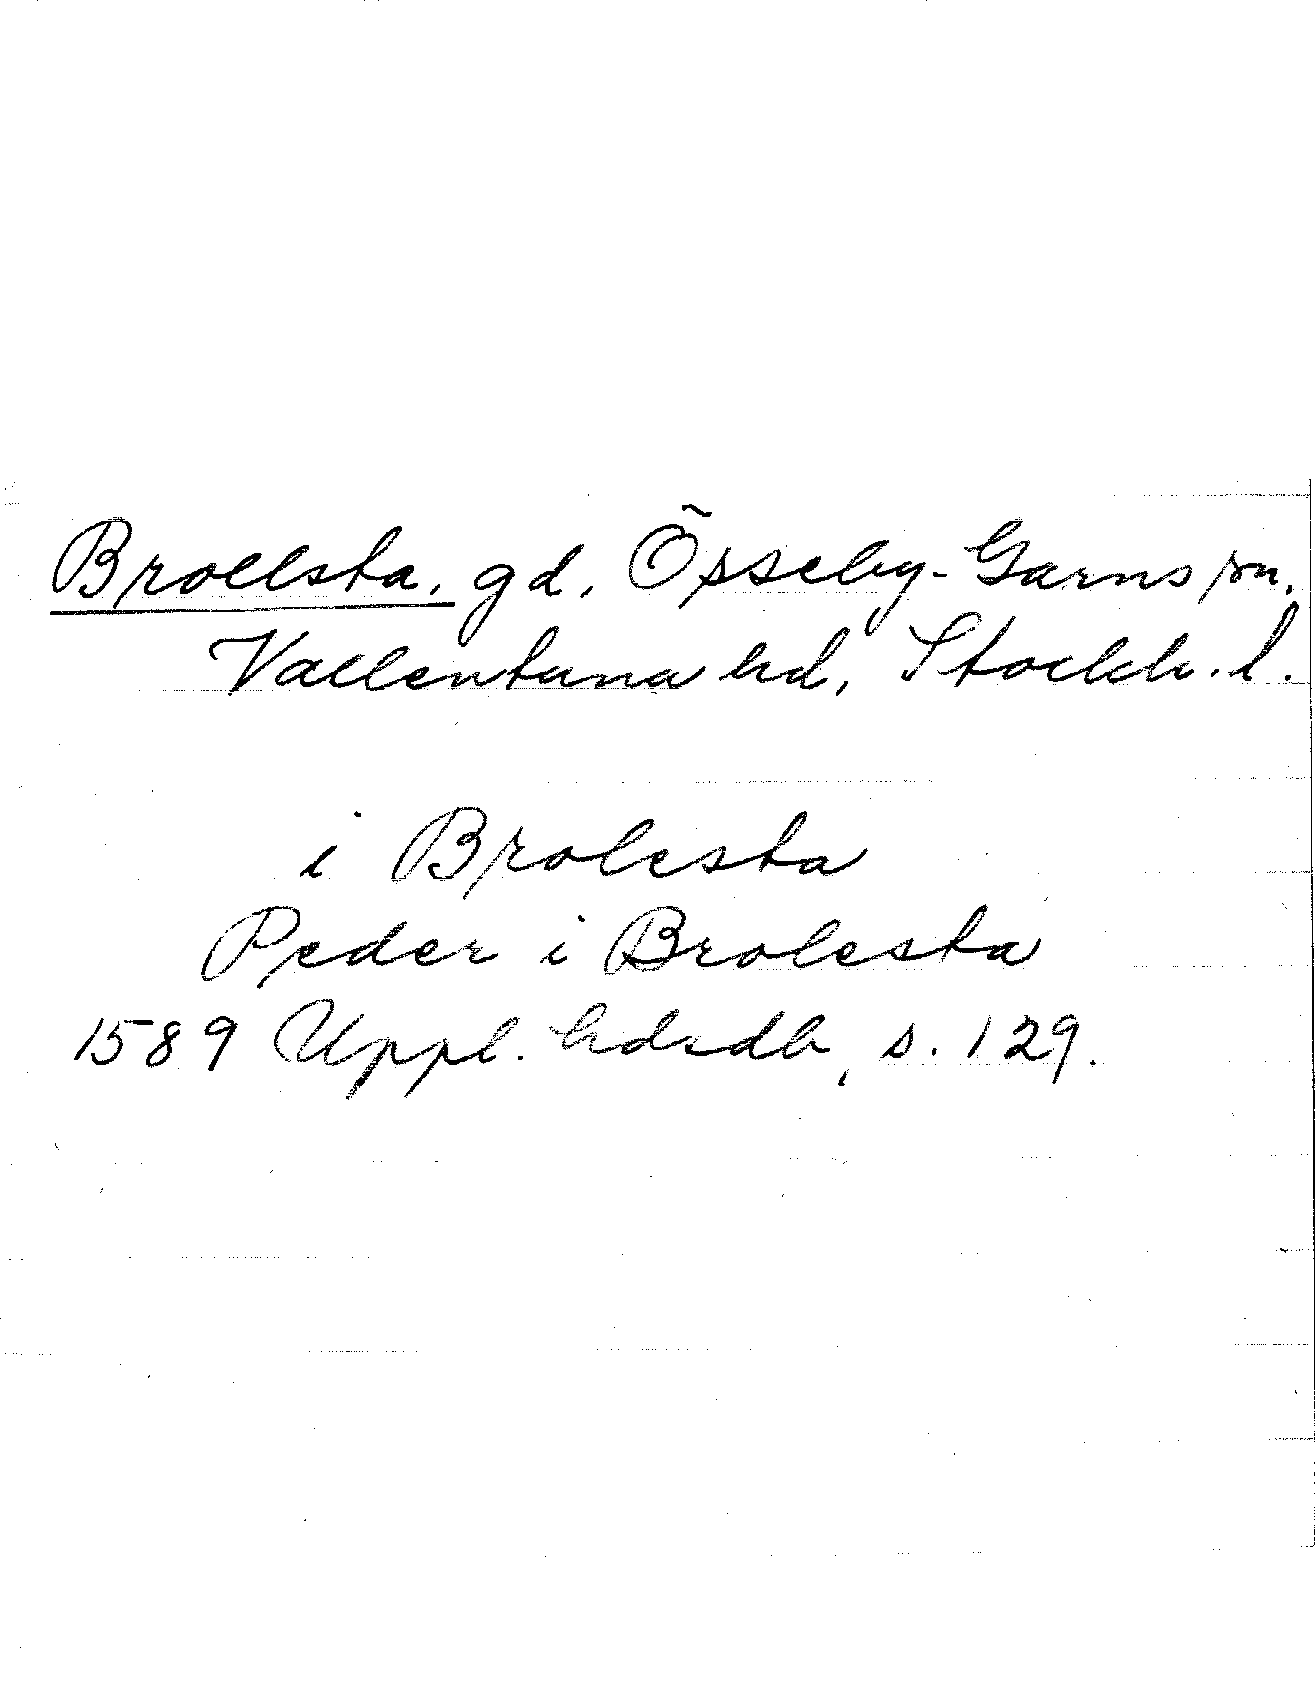 Brollsta. gd, Össeby-Garns sn.
Vallentuna hd, Stockh. l.
i Brolesta
Peder i Brolesta
1589 Uppl. hdrdb, s. 129.